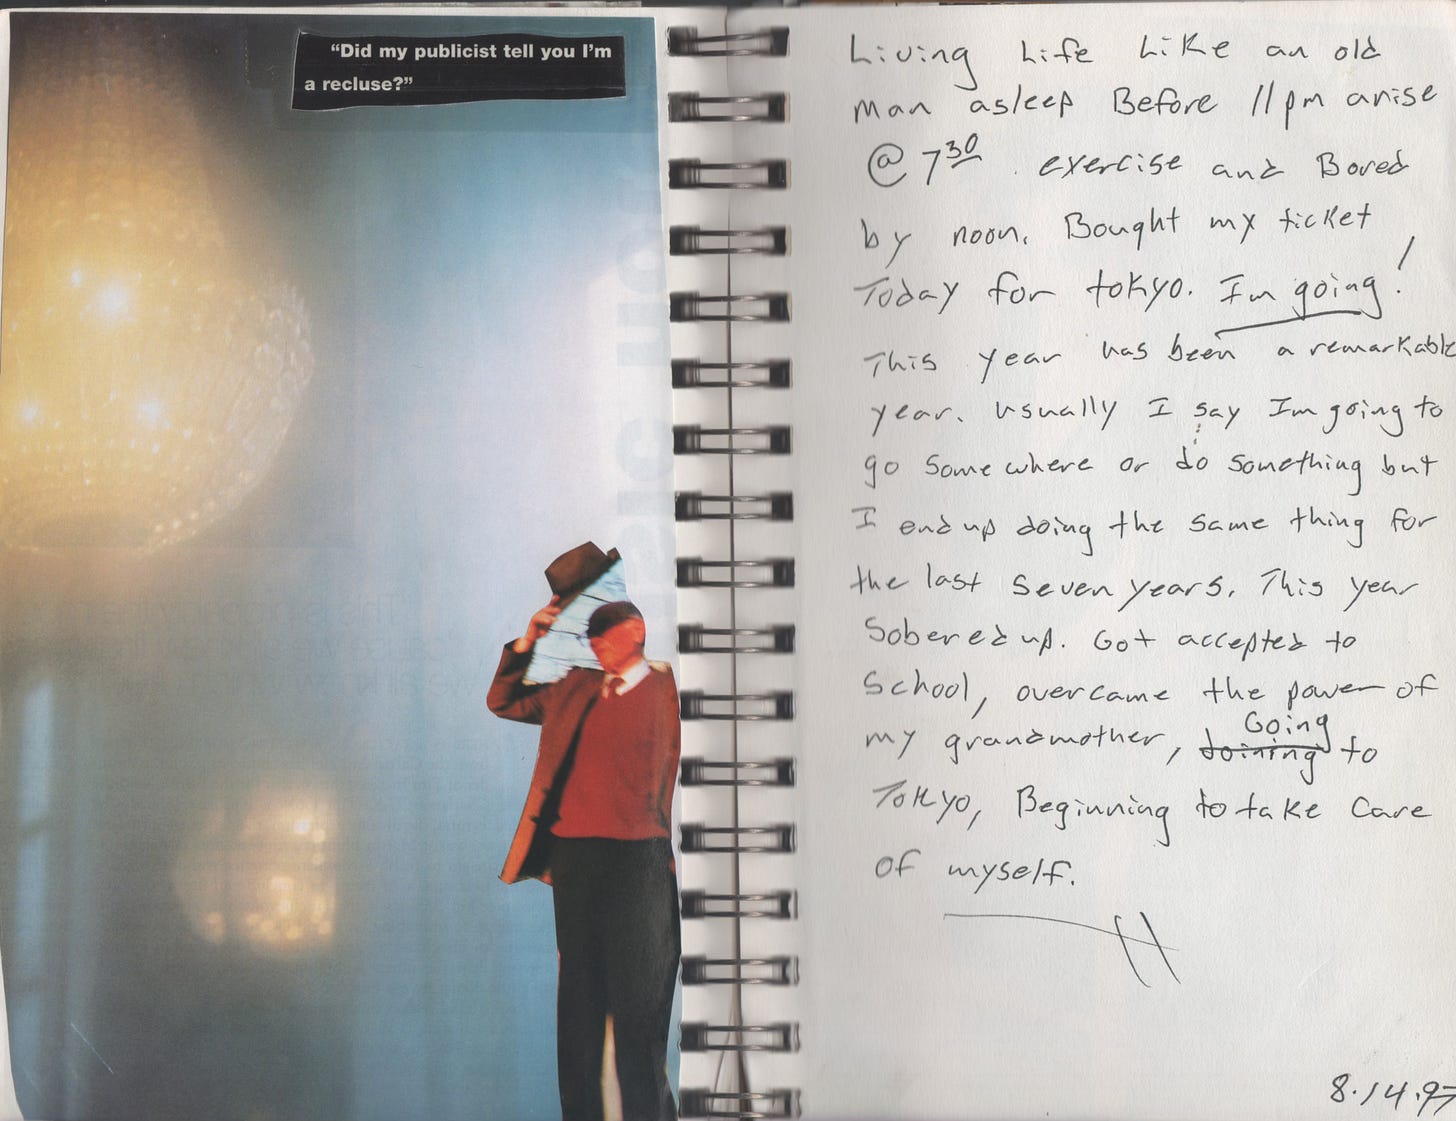 “Did my publicist tell you I’m
a recluse?”
Living Life Like an old
man asleep Before 11pm arise
@ 7³⁰ . exercise and Bored
by noon. Bought my ticket
Today for tokyo. Im going!
This year has been a remarkable
year. Usually I say Im going to
go somewhere or do something but
I end up doing the same thing for
the last seven years. This year
Sobered up. Got accepted to
School, overcame the power of
my grandmother, Going to
Tokyo, Beginning to take Care
of myself.
8.14.97